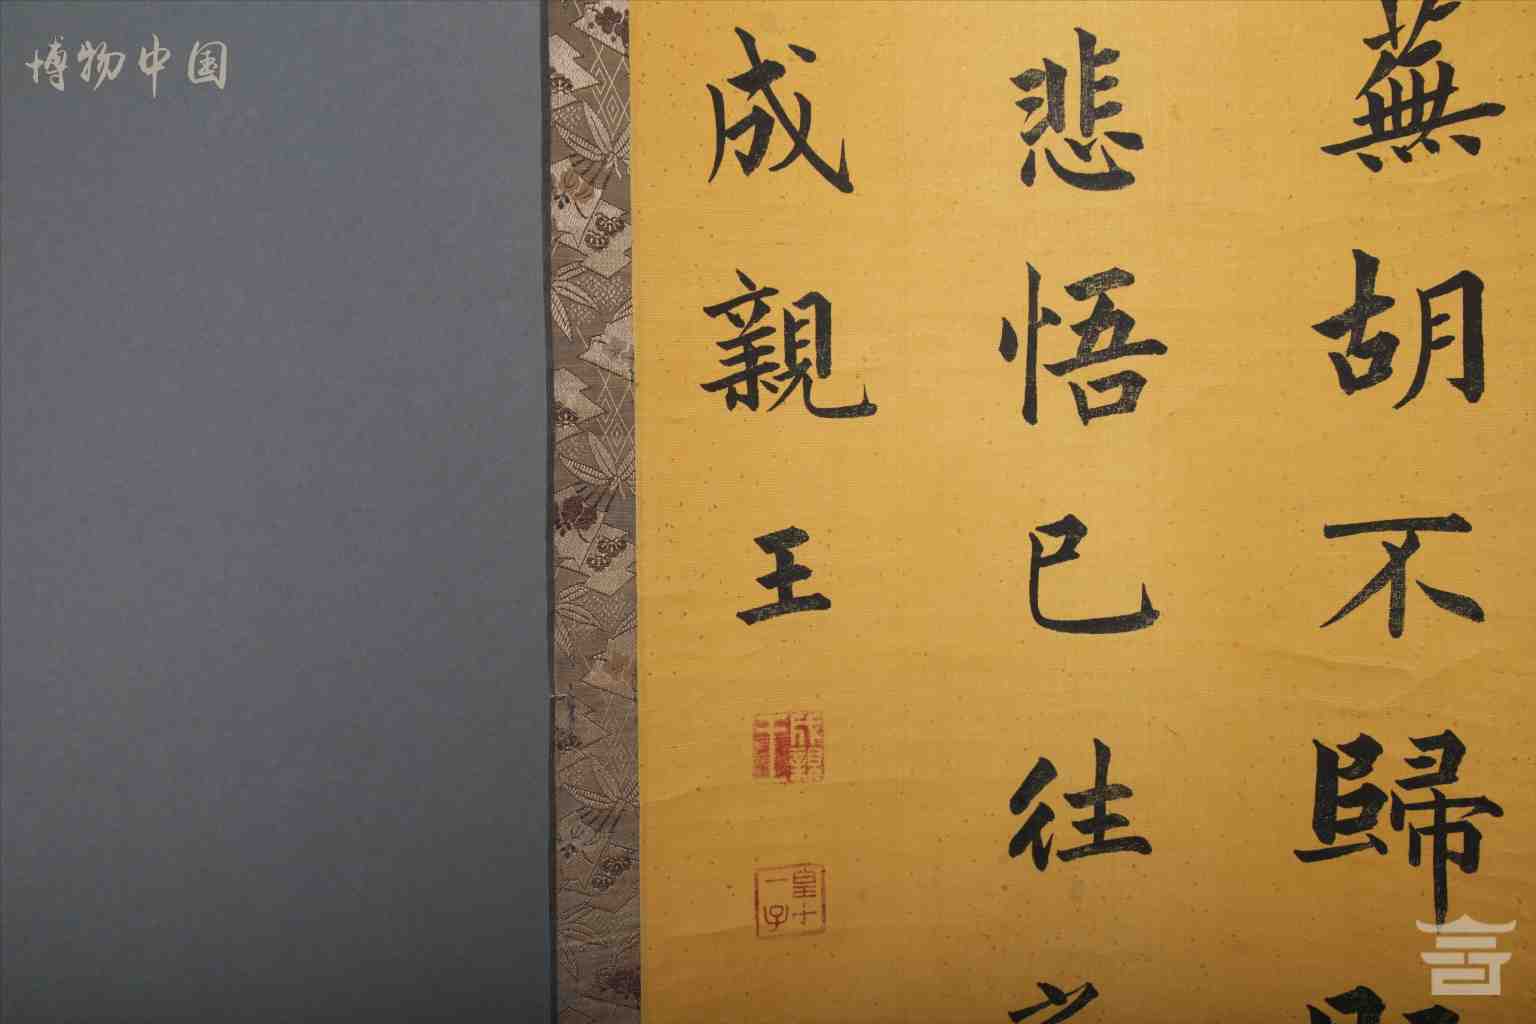 蕪胡不歸
悲悟已往之
成親王
成親王
皇十一子
博物中国